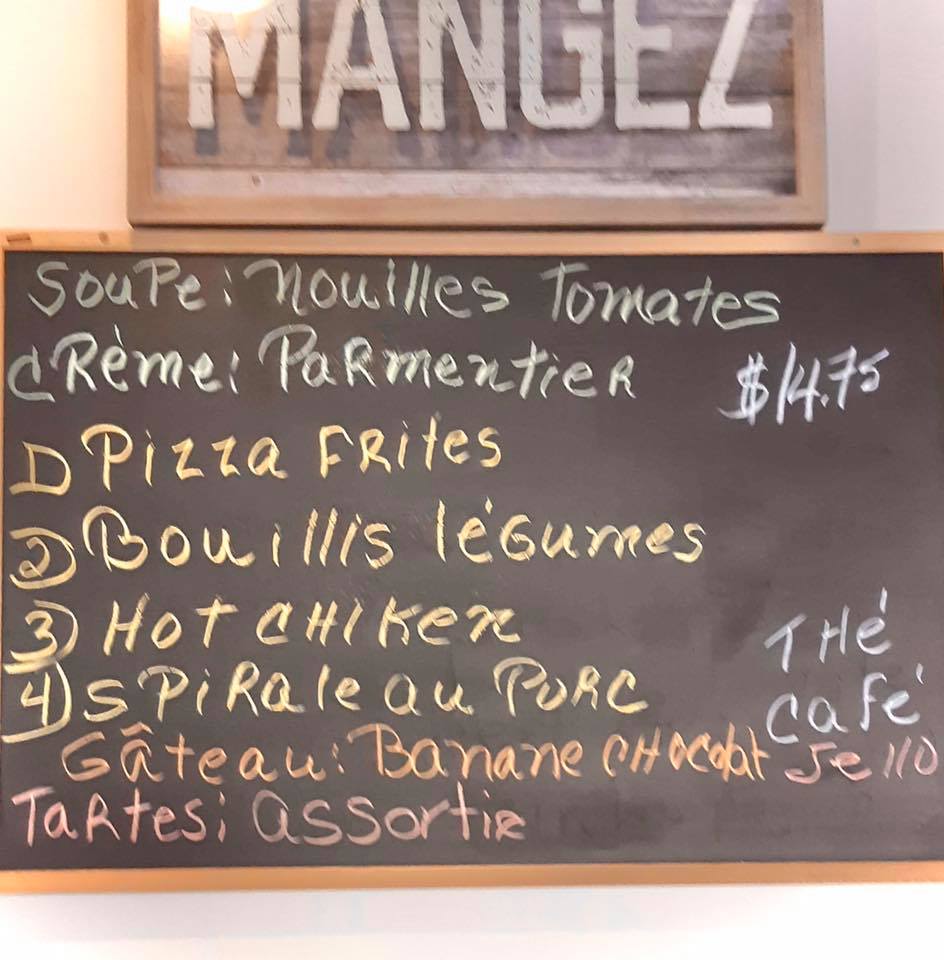 MANGEZ
Soupe: Nouilles Tomates
Crème: Parmentier $14.75
1) Pizza Frites
2) Bouillis légumes
3) Hot chiken
4) Spirale au Porc
Thé
Café
Gâteau: Banane chocolat Jello
Tartes: assortie